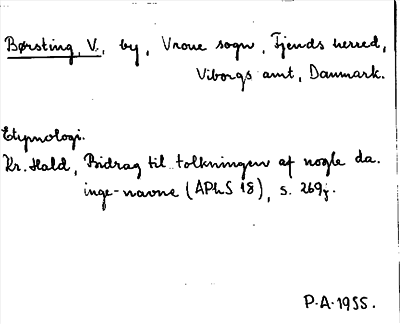 Børsting, V., by, Vrove sogn, Fjends herred,
Viborgs amt, Danmark.
Etymologi.
Kr. Hald, Bidrag til tolkningen af nogle da.
inge-navne (APhS 18), s. 269j.
P.A. 1955.